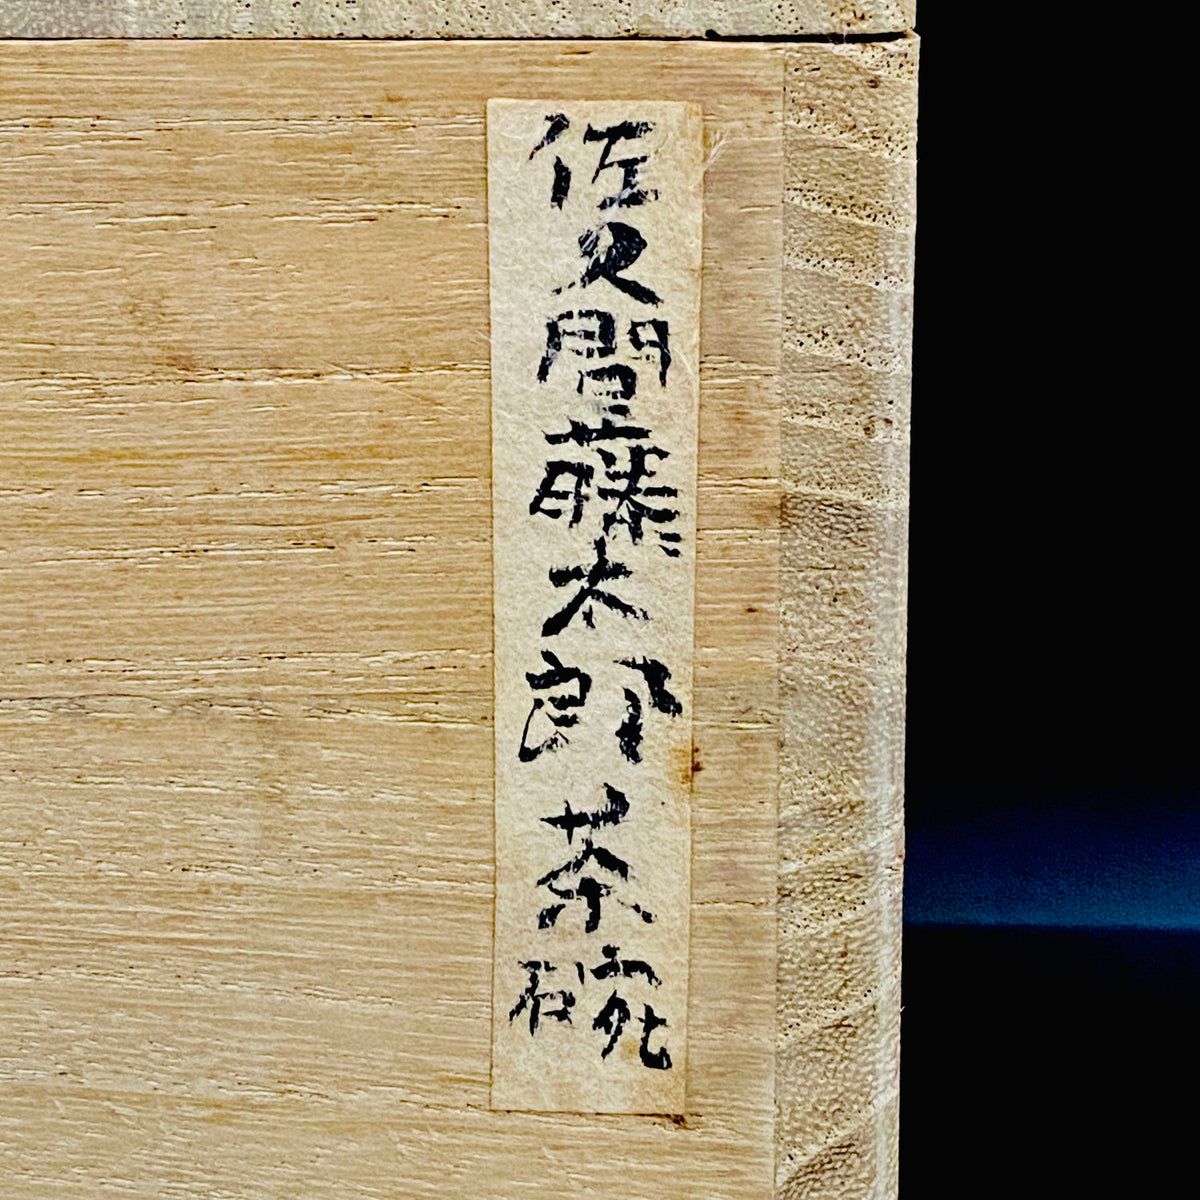 佐久間藤太郎茶碗